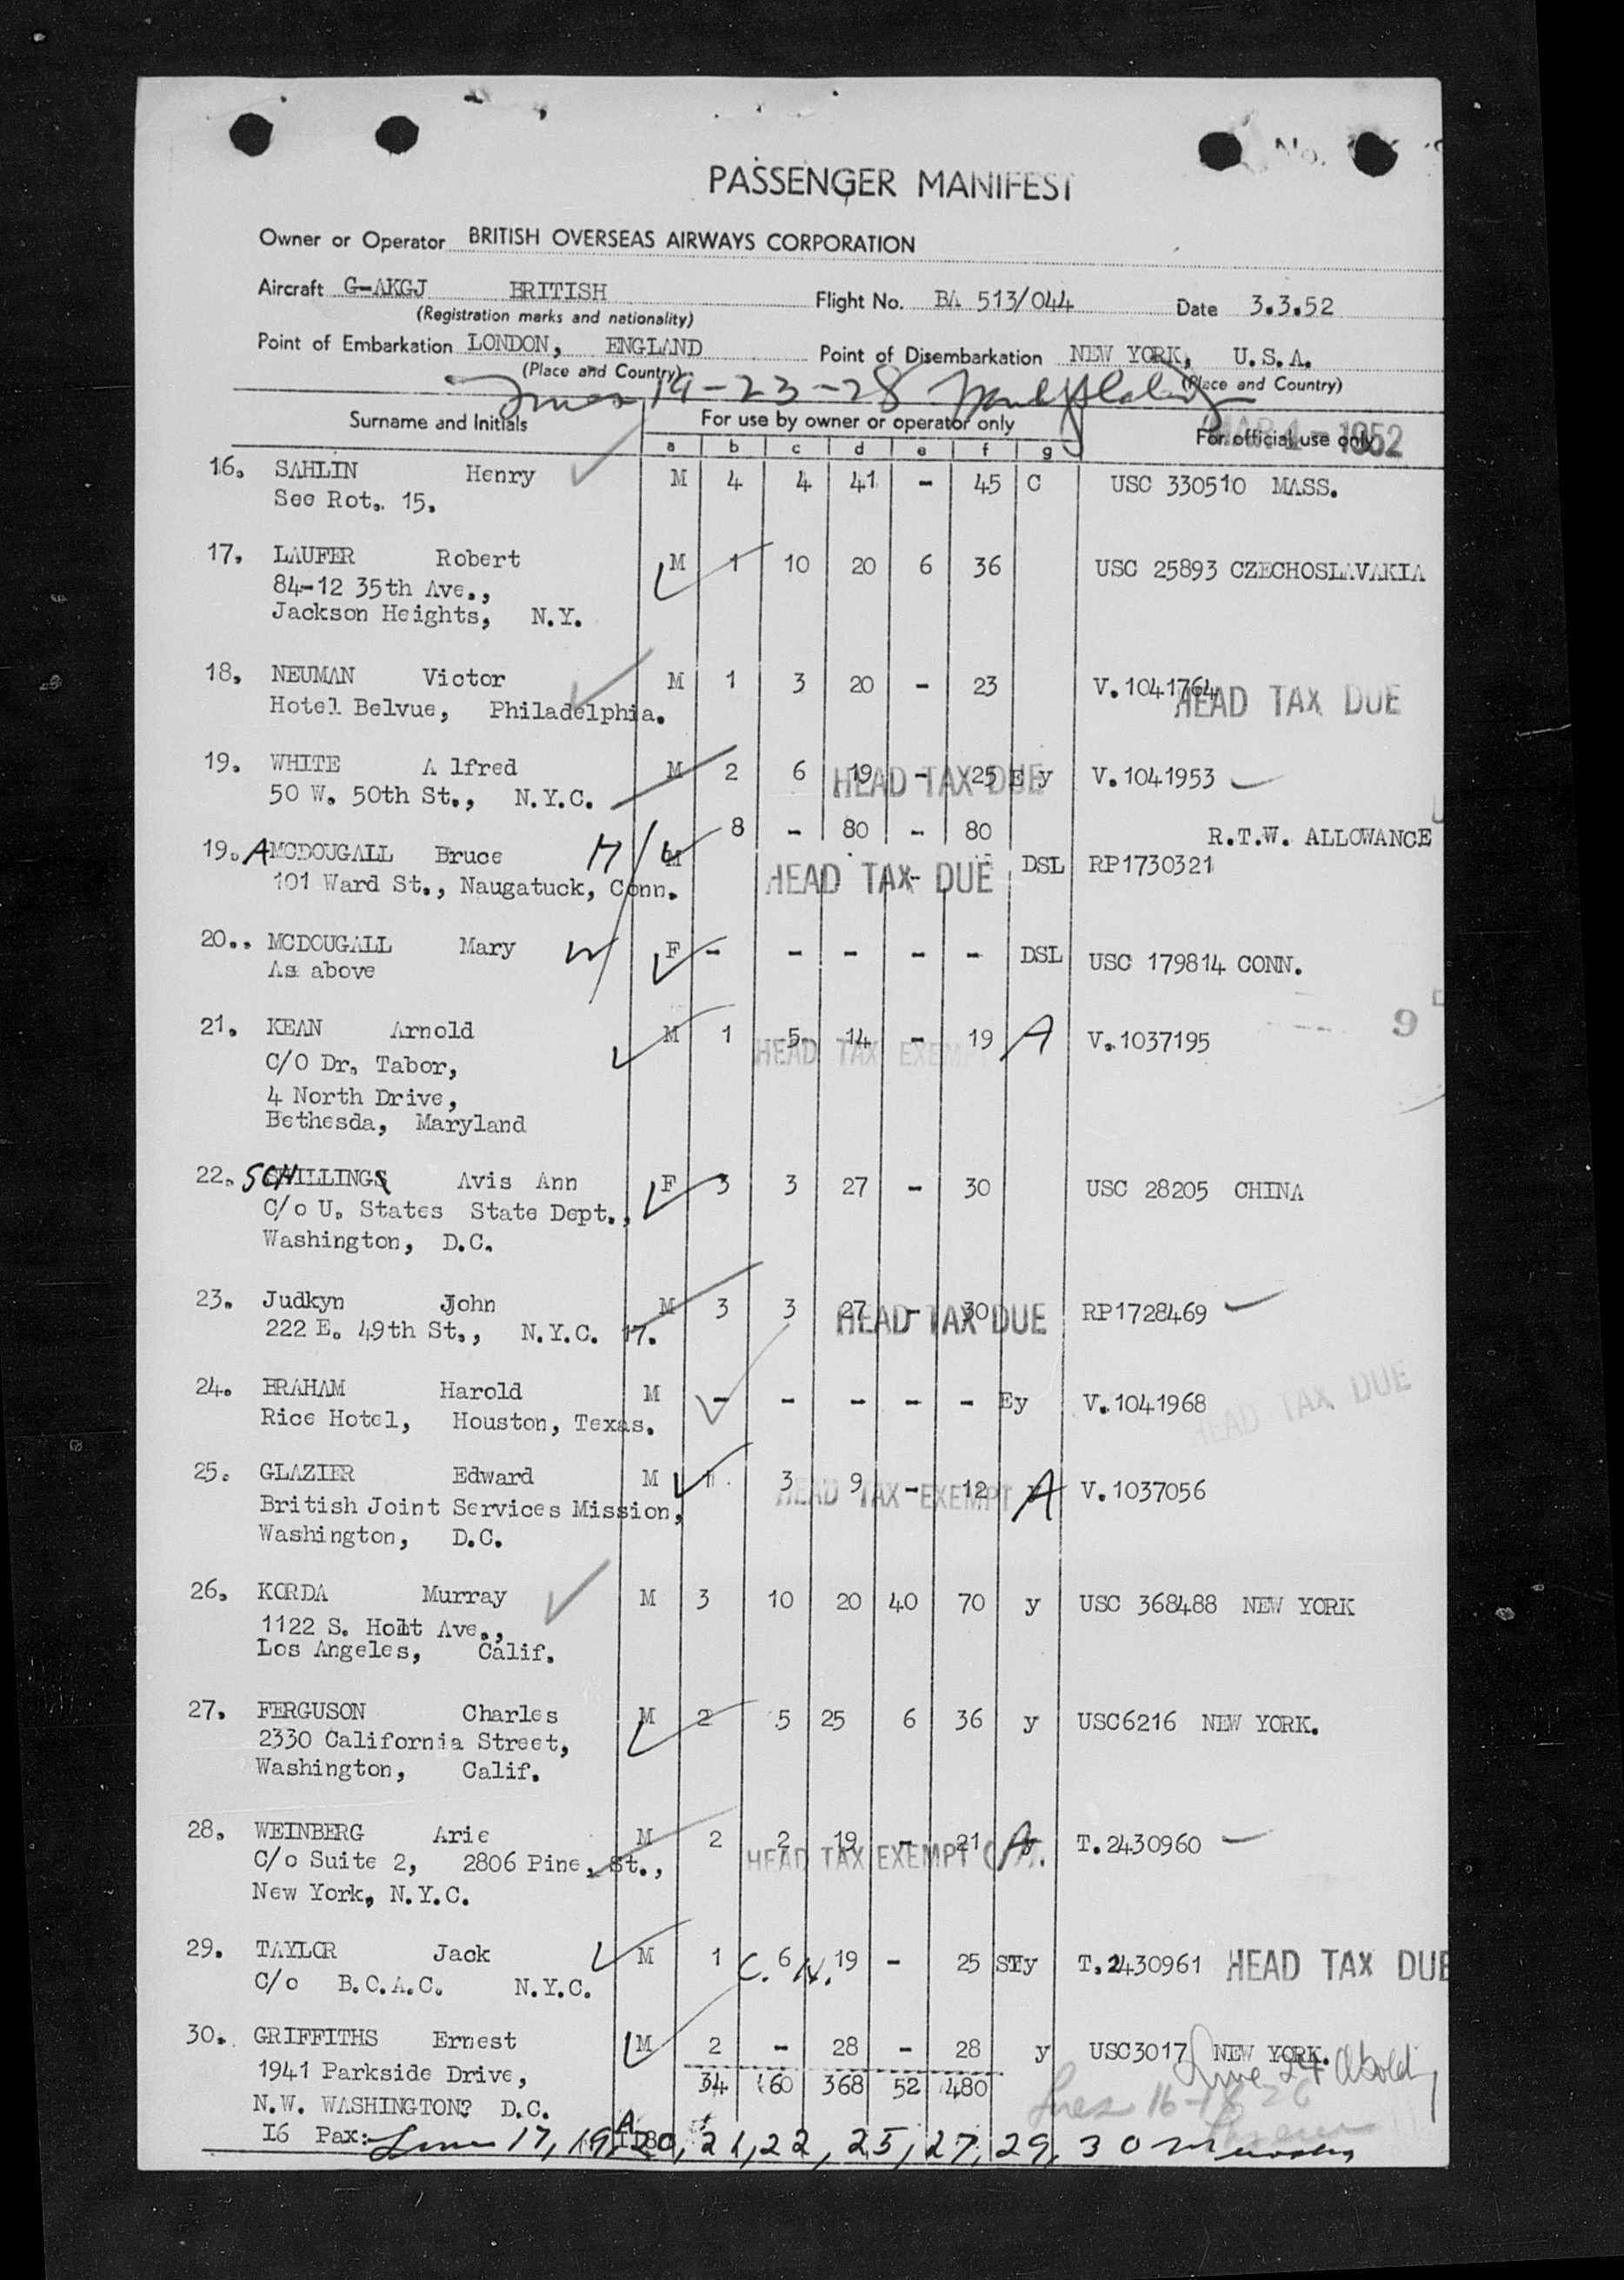 No.
PASSENGER MANIFEST
Owner or Operator BRITISH OVERSEAS AIRWAYS CORPORATION
Aircraft G-AKGJ BRITISH Flight No. BA 513/044 Date 3.3.52
(Registration marks and nationality)
Point of Embarkation LONDON, ENGLAND Point of Disembarkation NEW YORK, U.S.A.
(Place and Country) (Place and Country)
19-23-28
Surname and Initials For use by owner or operator only For official use only 1952
a b c d e f g
16. SAHLIN Henry M 4 4 41 - 45 C USC 330510 MASS.
See Rot. 15.
17. LAUFER Robert M 1 10 20 6 36 USC 25893 CZECHOSLAVAKIA
84-12 35th Ave.,
Jackson Heights, N.Y.
18. NEUMAN Victor M 1 3 20 - 23 V.1041764 HEAD TAX DUE
Hotel Belvue, Philadelphia.
19. WHITE A lfred M 2 6 19 - 25 E y V.1041953
50 W. 50th St., N.Y.C. HEAD TAX DUE
8 - 80 - 80 R.T.W. ALLOWANCE
19. A MCDOUGALL Bruce H M DSL RP1730321
101 Ward St., Naugatuck, Conn. HEAD TAX DUE
20.. MCDOUGALL Mary W F - - - - - DSL USC 179814 CONN.
As above
21. KEAN Arnold M 1 5 14 - 19 A V.1037195 9
C/O Dr. Tabor, HEAD TAX EXEMPT
4 North Drive,
Bethesda, Maryland
22. SCHILLING Avis Ann F 3 3 27 - 30 USC 28205 CHINA
C/o U. States State Dept.,
Washington, D.C.
23. Judkyn John M 3 3 27 - 30 RP1728469
222 E. 49th St., N.Y.C. 17. HEAD TAX DUE
24. BRAHAM Harold M - - - - - Ey V.1041968 HEAD TAX DUE
Rice Hotel, Houston, Texas.
25. GLAZIER Edward M 1 3 9 - 12 A V.1037056
British Joint Services Mission, HEAD TAX EXEMPT
Washington, D.C.
26. KORDA Murray M 3 10 20 40 70 y USC 368488 NEW YORK
1122 S. Holt Ave.,
Los Angeles, Calif.
27. FERGUSON Charles M 2 5 25 6 36 y USC6216 NEW YORK.
2330 California Street,
Washington, Calif.
28. WEINBERG Arie M 2 2 19 - 21 A T.2430960
C/o Suite 2, 2806 Pine, St., HEAD TAX EXEMPT
New York, N.Y.C.
29. TAYLOR Jack M 1 6 19 - 25 STy T.2430961 HEAD TAX DUE
C/o B.C.A.C. N.Y.C. C. N.
30. GRIFFITHS Ernest M 2 - 28 - 28 y USC3017 NEW YORK.
1941 Parkside Drive, 34 60 368 52 480
N.W. WASHINGTON? D.C.
16 Pax: 17, 19A, 20, 21, 22, 25, 27, 29, 30